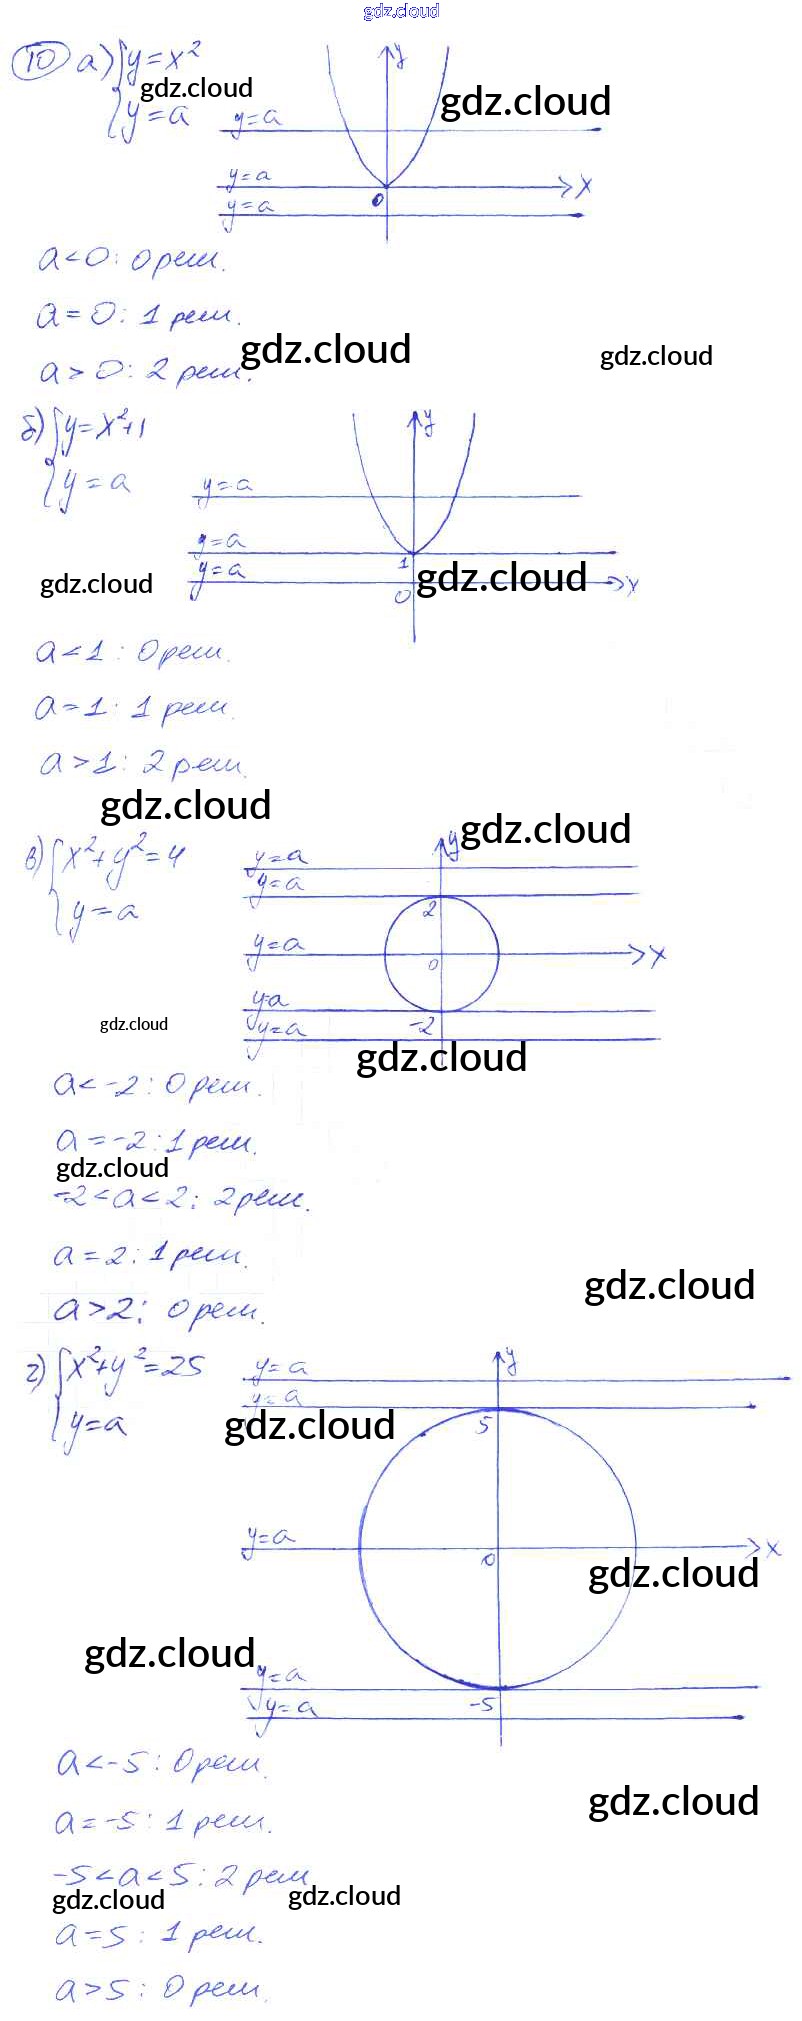 gdz.cloud
10 а) {y=x² y
gdz.cloud gdz.cloud
y=a y=a
y=a x
y=a 0
a<0: 0 реш.
a=0: 1 реш.
gdz.cloud gdz.cloud
a>0: 2 реш.
б) {y=x²+1 y
y=a y=a
y=a
gdz.cloud y=a 1 gdz.cloud x
0
a<1: 0 реш.
a=1: 1 реш.
a>1: 2 реш.
gdz.cloud gdz.cloud
в) {x²+y²=4 y=a y
y=a
y=a 2
y=a 0 x
y=a
gdz.cloud y=a -2
gdz.cloud
a<-2: 0 реш.
a=-2: 1 реш.
gdz.cloud
-2<a<2: 2 реш.
a=2: 1 реш.
gdz.cloud
a>2: 0 реш.
г) {x²+y²=25 y=a y
y=a
y=a gdz.cloud 5
y=a 0 x
gdz.cloud
gdz.cloud
y=a
y=a -5
a<-5: 0 реш.
gdz.cloud
a=-5: 1 реш.
-5<a<5: 2 реш
gdz.cloud gdz.cloud
a=5: 1 реш.
a>5: 0 реш.